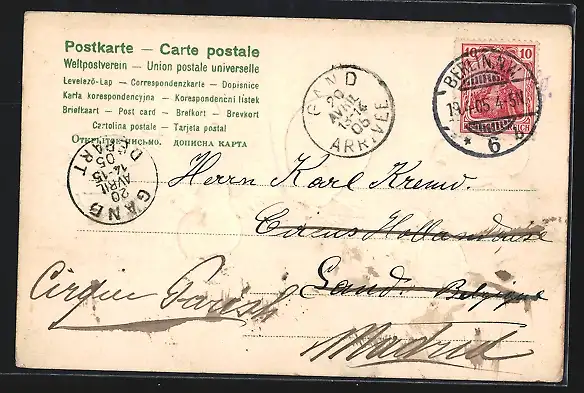 Postkarte — Carte postale
Weltpostverein — Union postale universelle
Levelező-Lap — Correspondenzkarte — Dopisnice
Karta korespondencyjna — Korespondenční lístek
Briefkaart — Post card — Brefkort — Brevkort
Cartolina postale — Tarjeta postal
Открытое письмо. ДОПИСНА КАРТА
GAND
20
AVRIL
13-14
05
ARRIVÉE
10 10
BERLIN, N.W.
19.4.05. 4-5N.
* 6 *
REICH
GAND
20
AVRIL
14-15
05
DÉPART
Herrn Karl
Circus Hollandaise
Gand. Belgique
Parish
Madrid